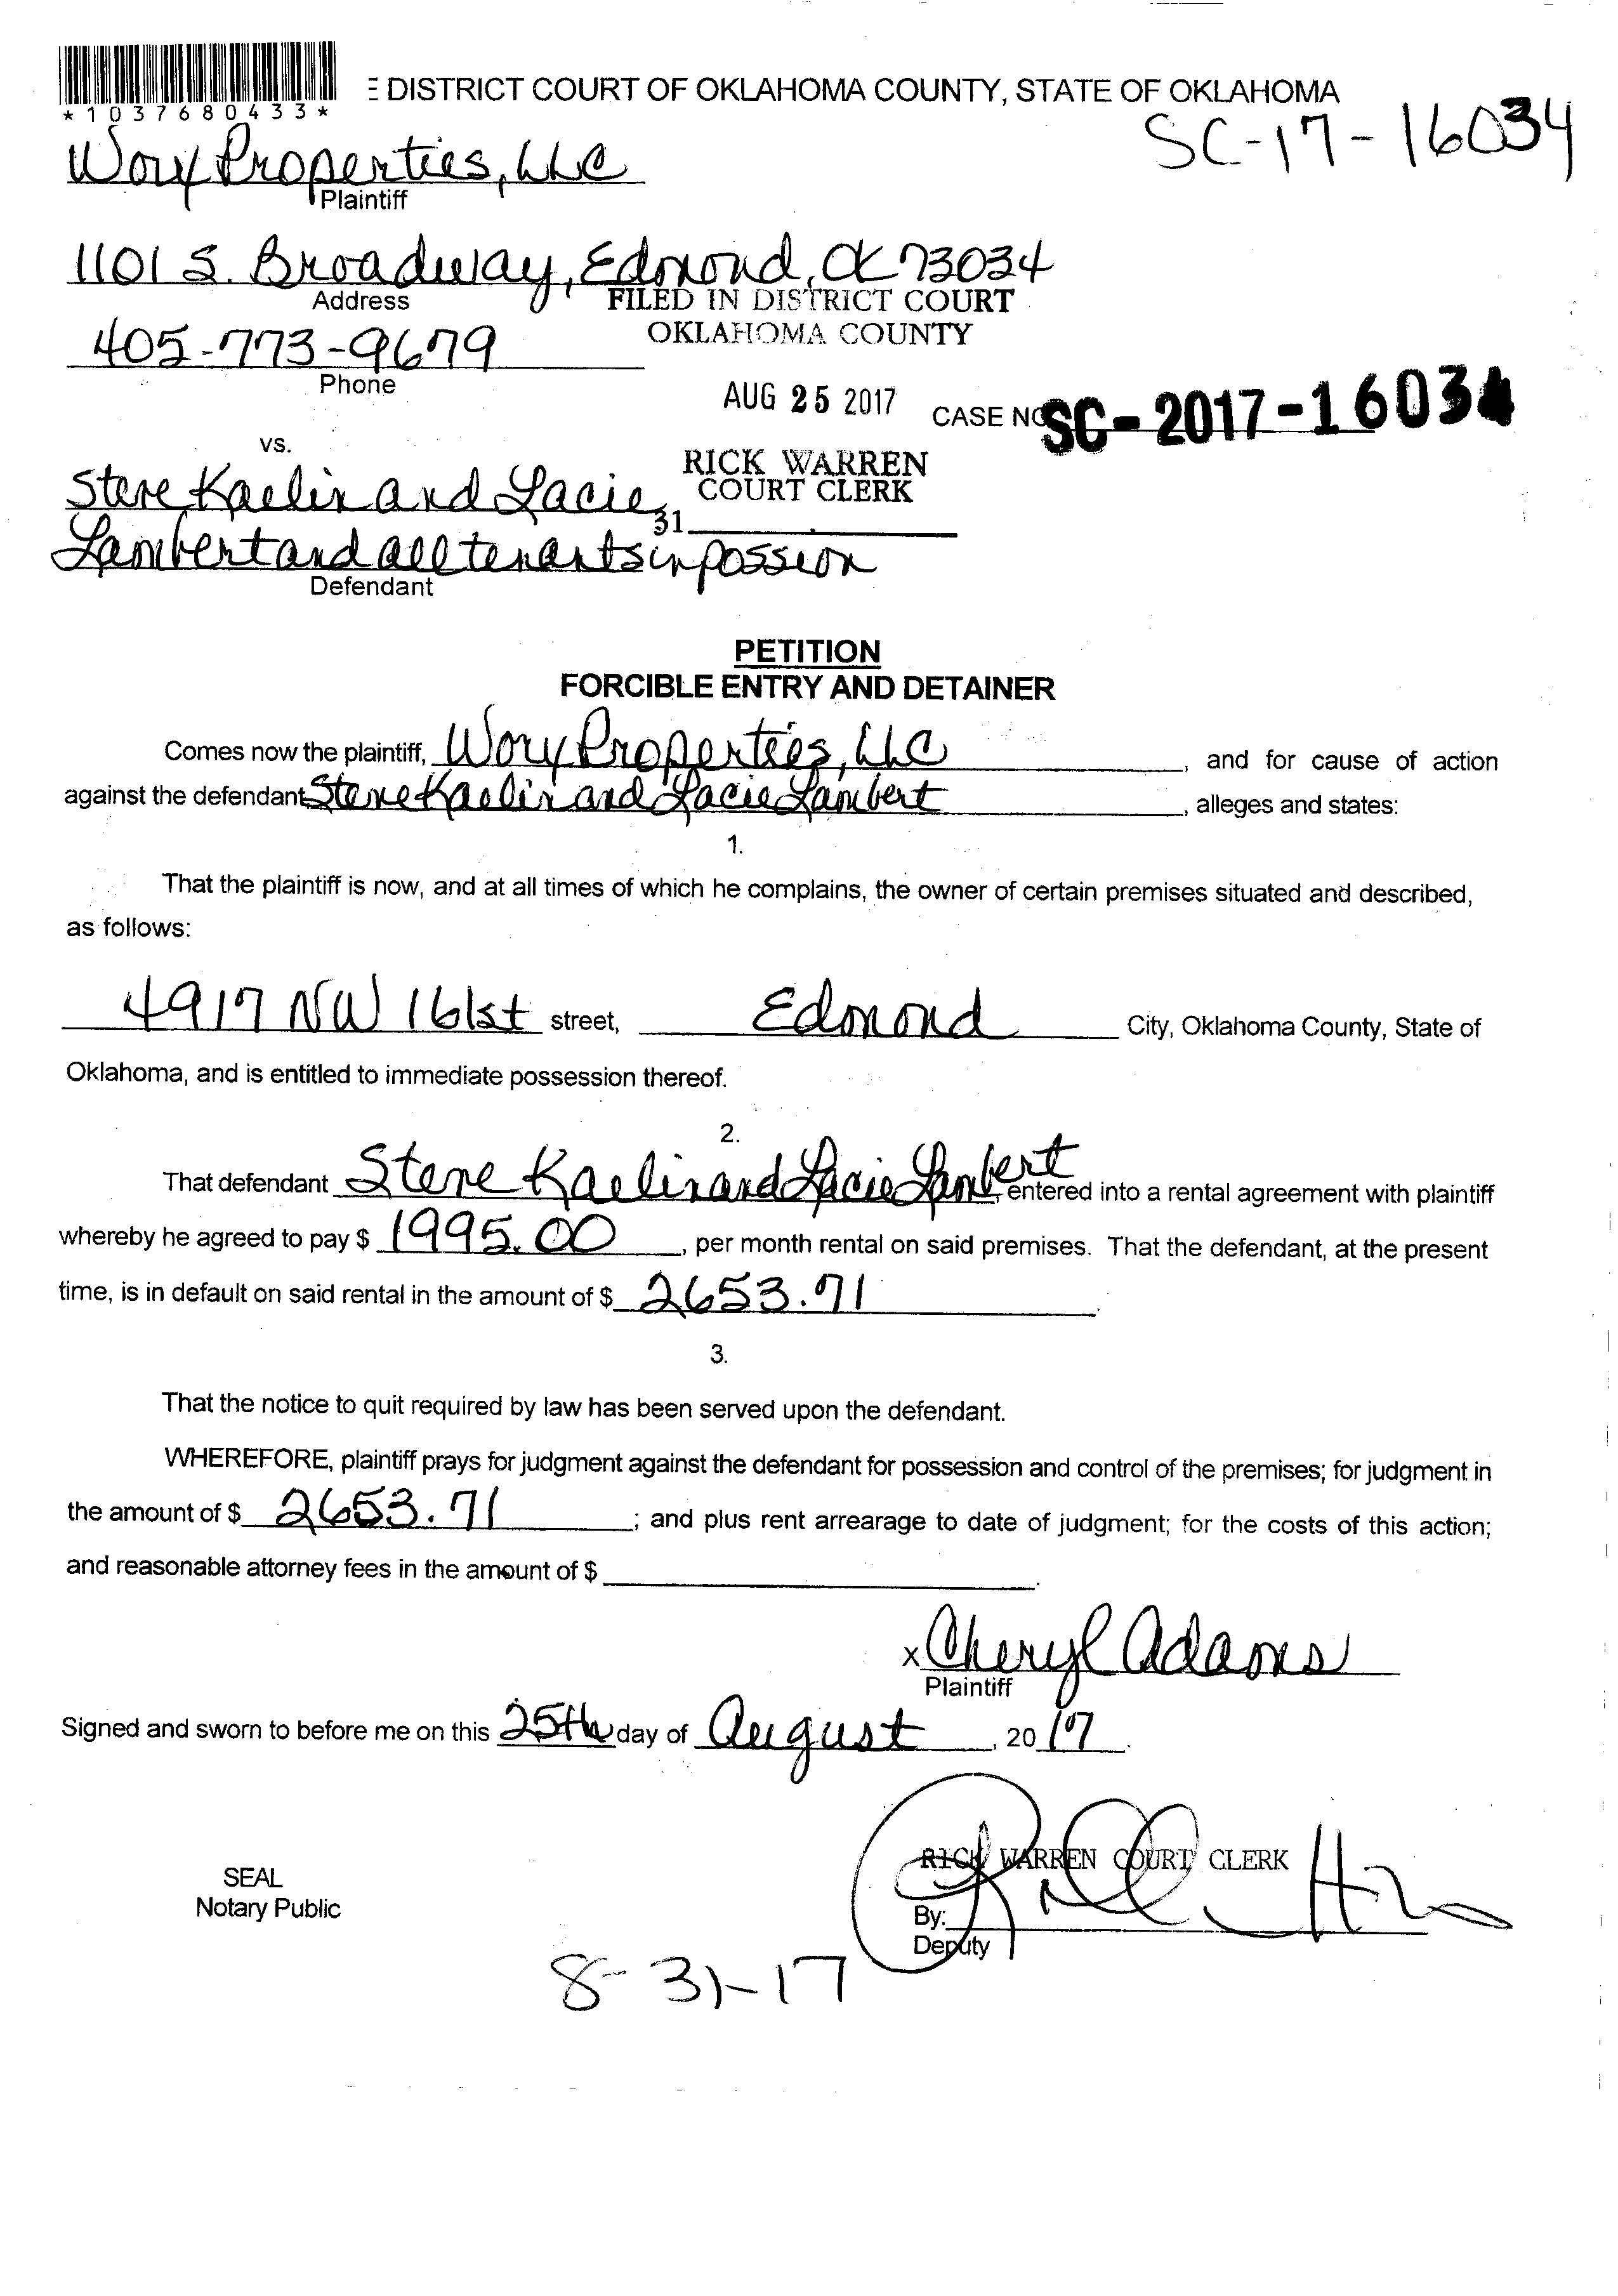 E DISTRICT COURT OF OKLAHOMA COUNTY, STATE OF OKLAHOMA
*1037680433*
SC-17-16034
Worx Properties, LLC
Plaintiff
1101 S. Broadway, Edmond, OK 73034
Address
FILED IN DISTRICT COURT
OKLAHOMA COUNTY
405-773-9679
Phone
AUG 25 2017
CASE NO SC-2017-16034
vs.
RICK WARREN
COURT CLERK
Steve Kaelin and Lacie
31
Lambert and all tenants in possion
Defendant
PETITION
FORCIBLE ENTRY AND DETAINER
Comes now the plaintiff, Worx Properties, LLC, and for cause of action
against the defendant Steve Kaelin and Lacie Lambert, alleges and states:
1.
That the plaintiff is now, and at all times of which he complains, the owner of certain premises situated and described,
as follows:
4917 NW 161st street, Edmond City, Oklahoma County, State of
Oklahoma, and is entitled to immediate possession thereof.
2.
That defendant Steve Kaelin and Lacie Lambert, entered into a rental agreement with plaintiff
whereby he agreed to pay $ 1995.00, per month rental on said premises. That the defendant, at the present
time, is in default on said rental in the amount of $ 2653.71.
3.
That the notice to quit required by law has been served upon the defendant.
WHEREFORE, plaintiff prays for judgment against the defendant for possession and control of the premises; for judgment in
the amount of $ 2653.71; and plus rent arrearage to date of judgment; for the costs of this action;
and reasonable attorney fees in the amount of $ .
x Cheryl Adams
Plaintiff
Signed and sworn to before me on this 25th day of August, 2017.
RICK WARREN COURT CLERK
SEAL
Notary Public
By:
Deputy
8-31-17